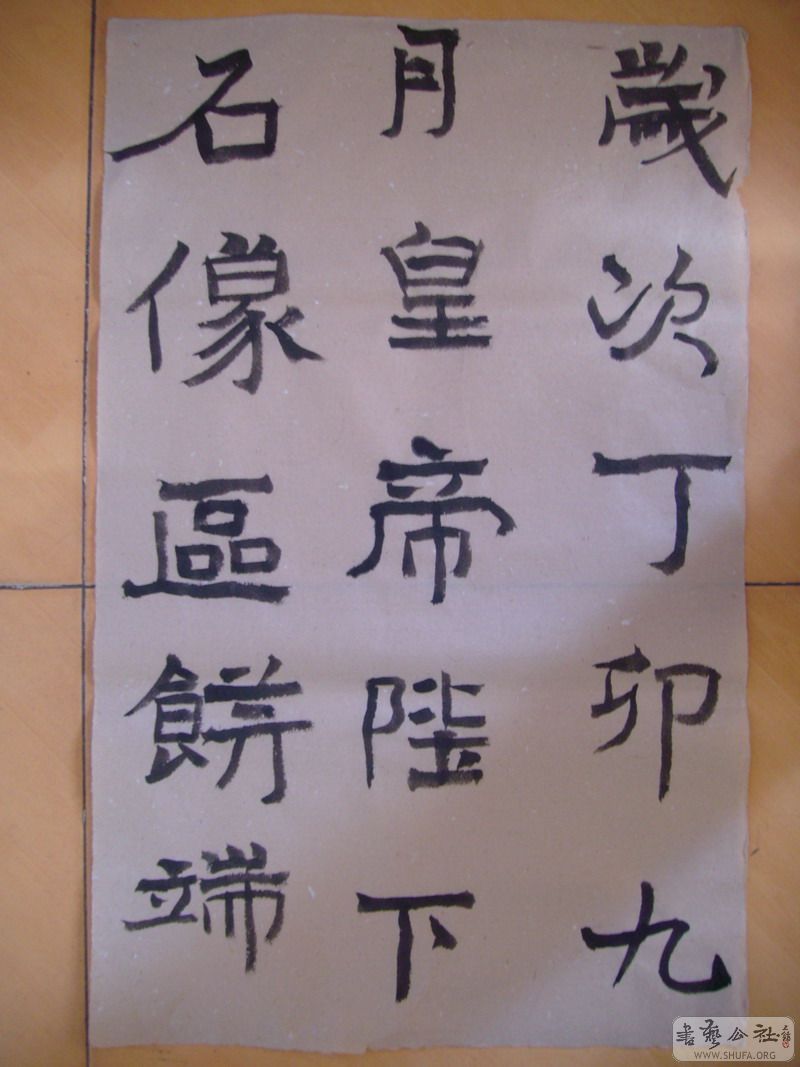 歲次丁卯九
月皇帝陛下
石像區餅端
書藝公社
WWW.SHUFA.ORG